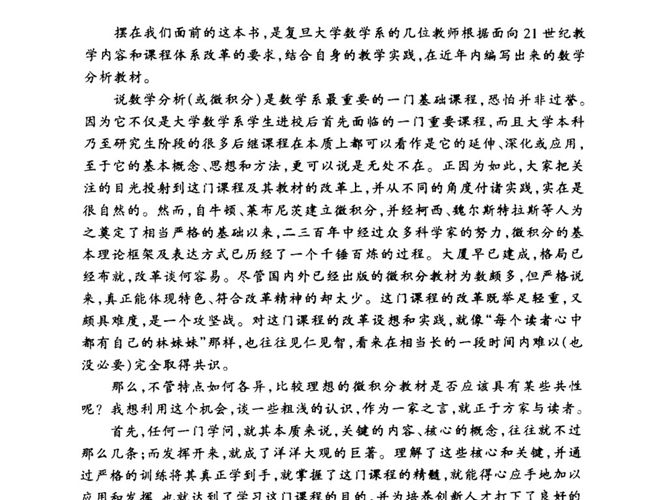 摆在我们面前的这本书,是复旦大学数学系的几位教师根据面向21世纪教
学内容和课程体系改革的要求,结合自身的教学实践,在近年内编写出来的数学
分析教材。
说数学分析(或微积分)是数学系最重要的一门基础课程,恐怕并非过誉。
因为它不仅是大学数学系学生进校后首先面临的一门重要课程,而且大学本科
乃至研究生阶段的很多后继课程在本质上都可以看作是它的延伸、深化或应用,
至于它的基本概念、思想和方法,更可以说是无处不在。正因为如此,大家把关
注的目光投射到这门课程及其教材的改革上,并从不同的角度付诸实践,实在是
很自然的。然而,自牛顿、莱布尼茨建立微积分,并经柯西、魏尔斯特拉斯等人为
之奠定了相当严格的基础以来,二三百年中经过众多科学家的努力,微积分的基
本理论框架及表达方式已历经了一个千锤百炼的过程。大厦早已建成,格局已
经布就,改革谈何容易。尽管国内外已经出版的微积分教材为数颇多,但严格说
来,真正能体现特色、符合改革精神的却太少。这门课程的改革既举足轻重,又
颇具难度,是一个攻坚战。对这门课程的改革设想和实践,就像“每个读者心中
都有自己的林妹妹”那样,也往往见仁见智,看来在相当长的一段时间内难以(也
没必要)完全取得共识。
那么,不管特点如何各异,比较理想的微积分教材是否应该具有某些共性
呢?我想利用这个机会,谈一些粗浅的认识,作为一家之言,就正于方家与读者。
首先,任何一门学问,就其本质来说,关键的内容、核心的概念,往往就不过
那么几条;而发挥开来,就成了洋洋大观的巨著。理解了这些核心和关键,并通
过严格的训练将其真正学到手,就掌握了这门课程的精髓,就能得心应手地加以
应用和发挥,也就达到了学习这门课程的目的,并为培养创新人才打下了良好的